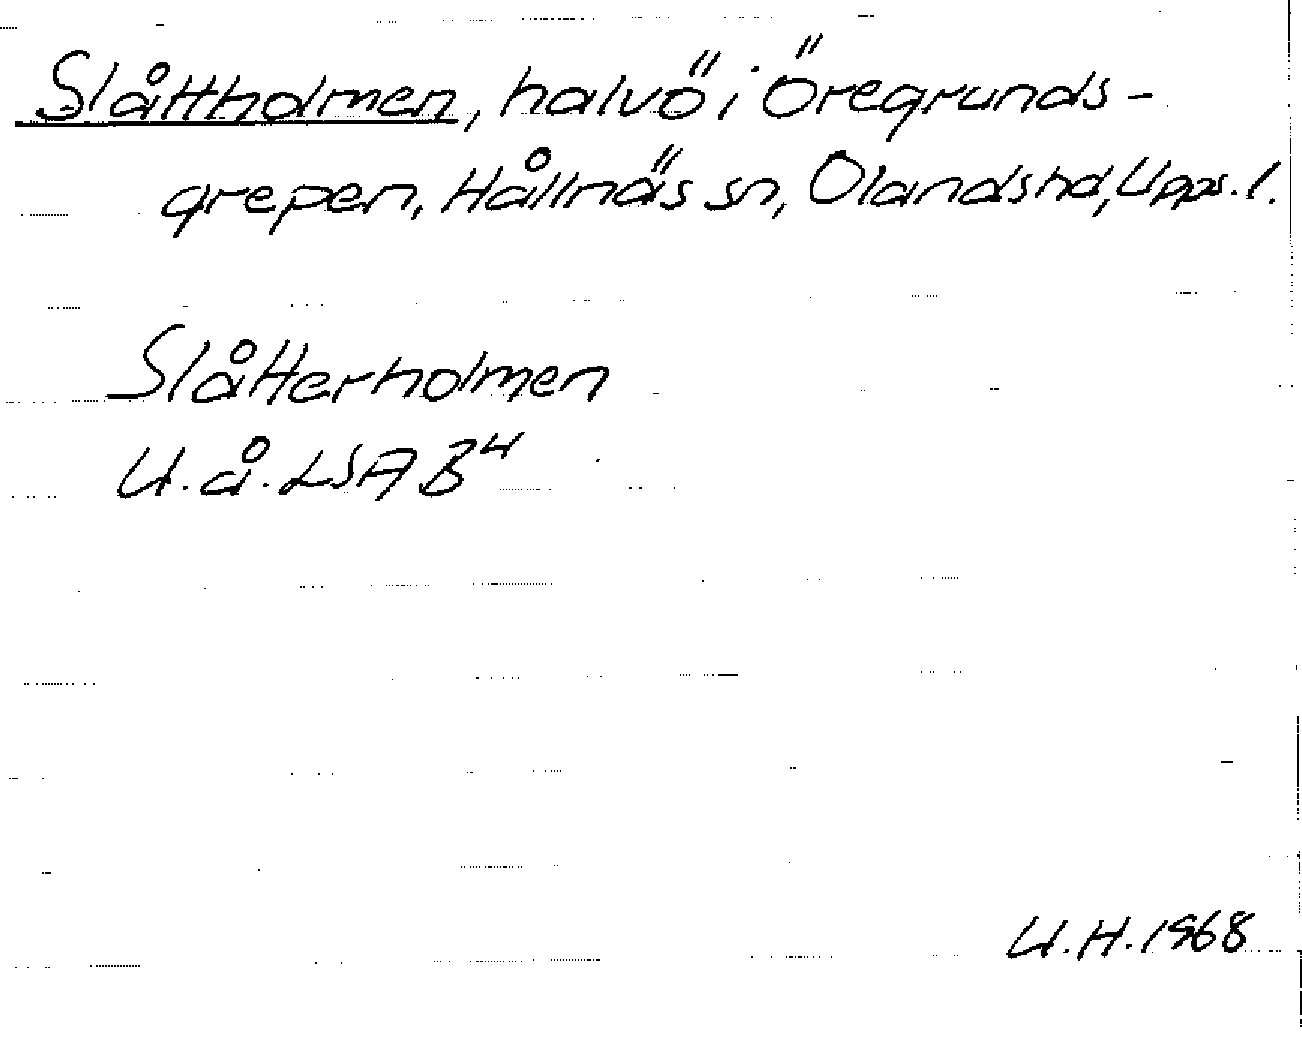 Slåttholmen, halvö i Öregrunds-
grepen, Hållnäs sn, Olands hd, Upps. l.
Slåtterholmen
U.å. LSA B⁴
U.H. 1968